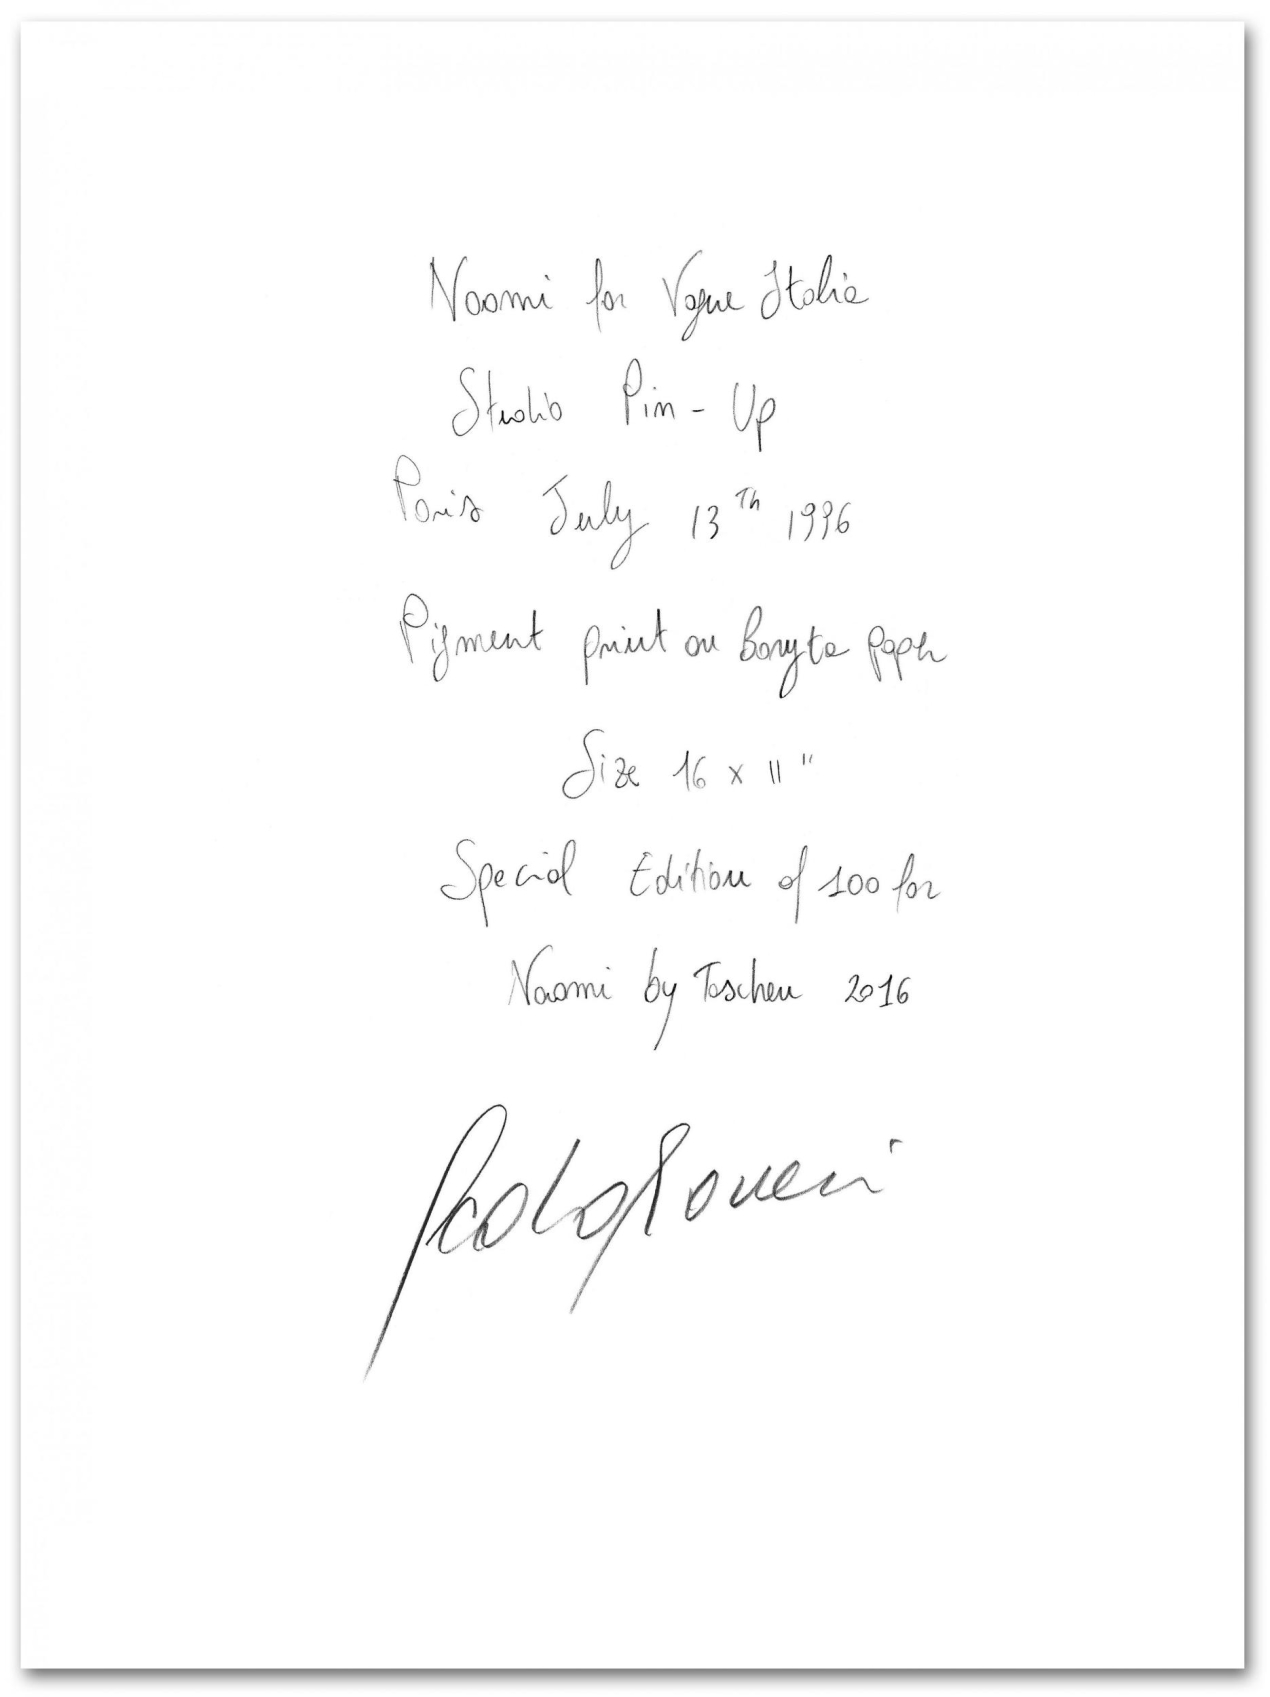 Naomi for Vogue Italia
Studio Pin-Up
Paris July 13Th 1996
Pigment print on Baryta paper
Size 16 x 11"
Special Edition of 100 for
Naomi by Taschen 2016
Paolo Roversi